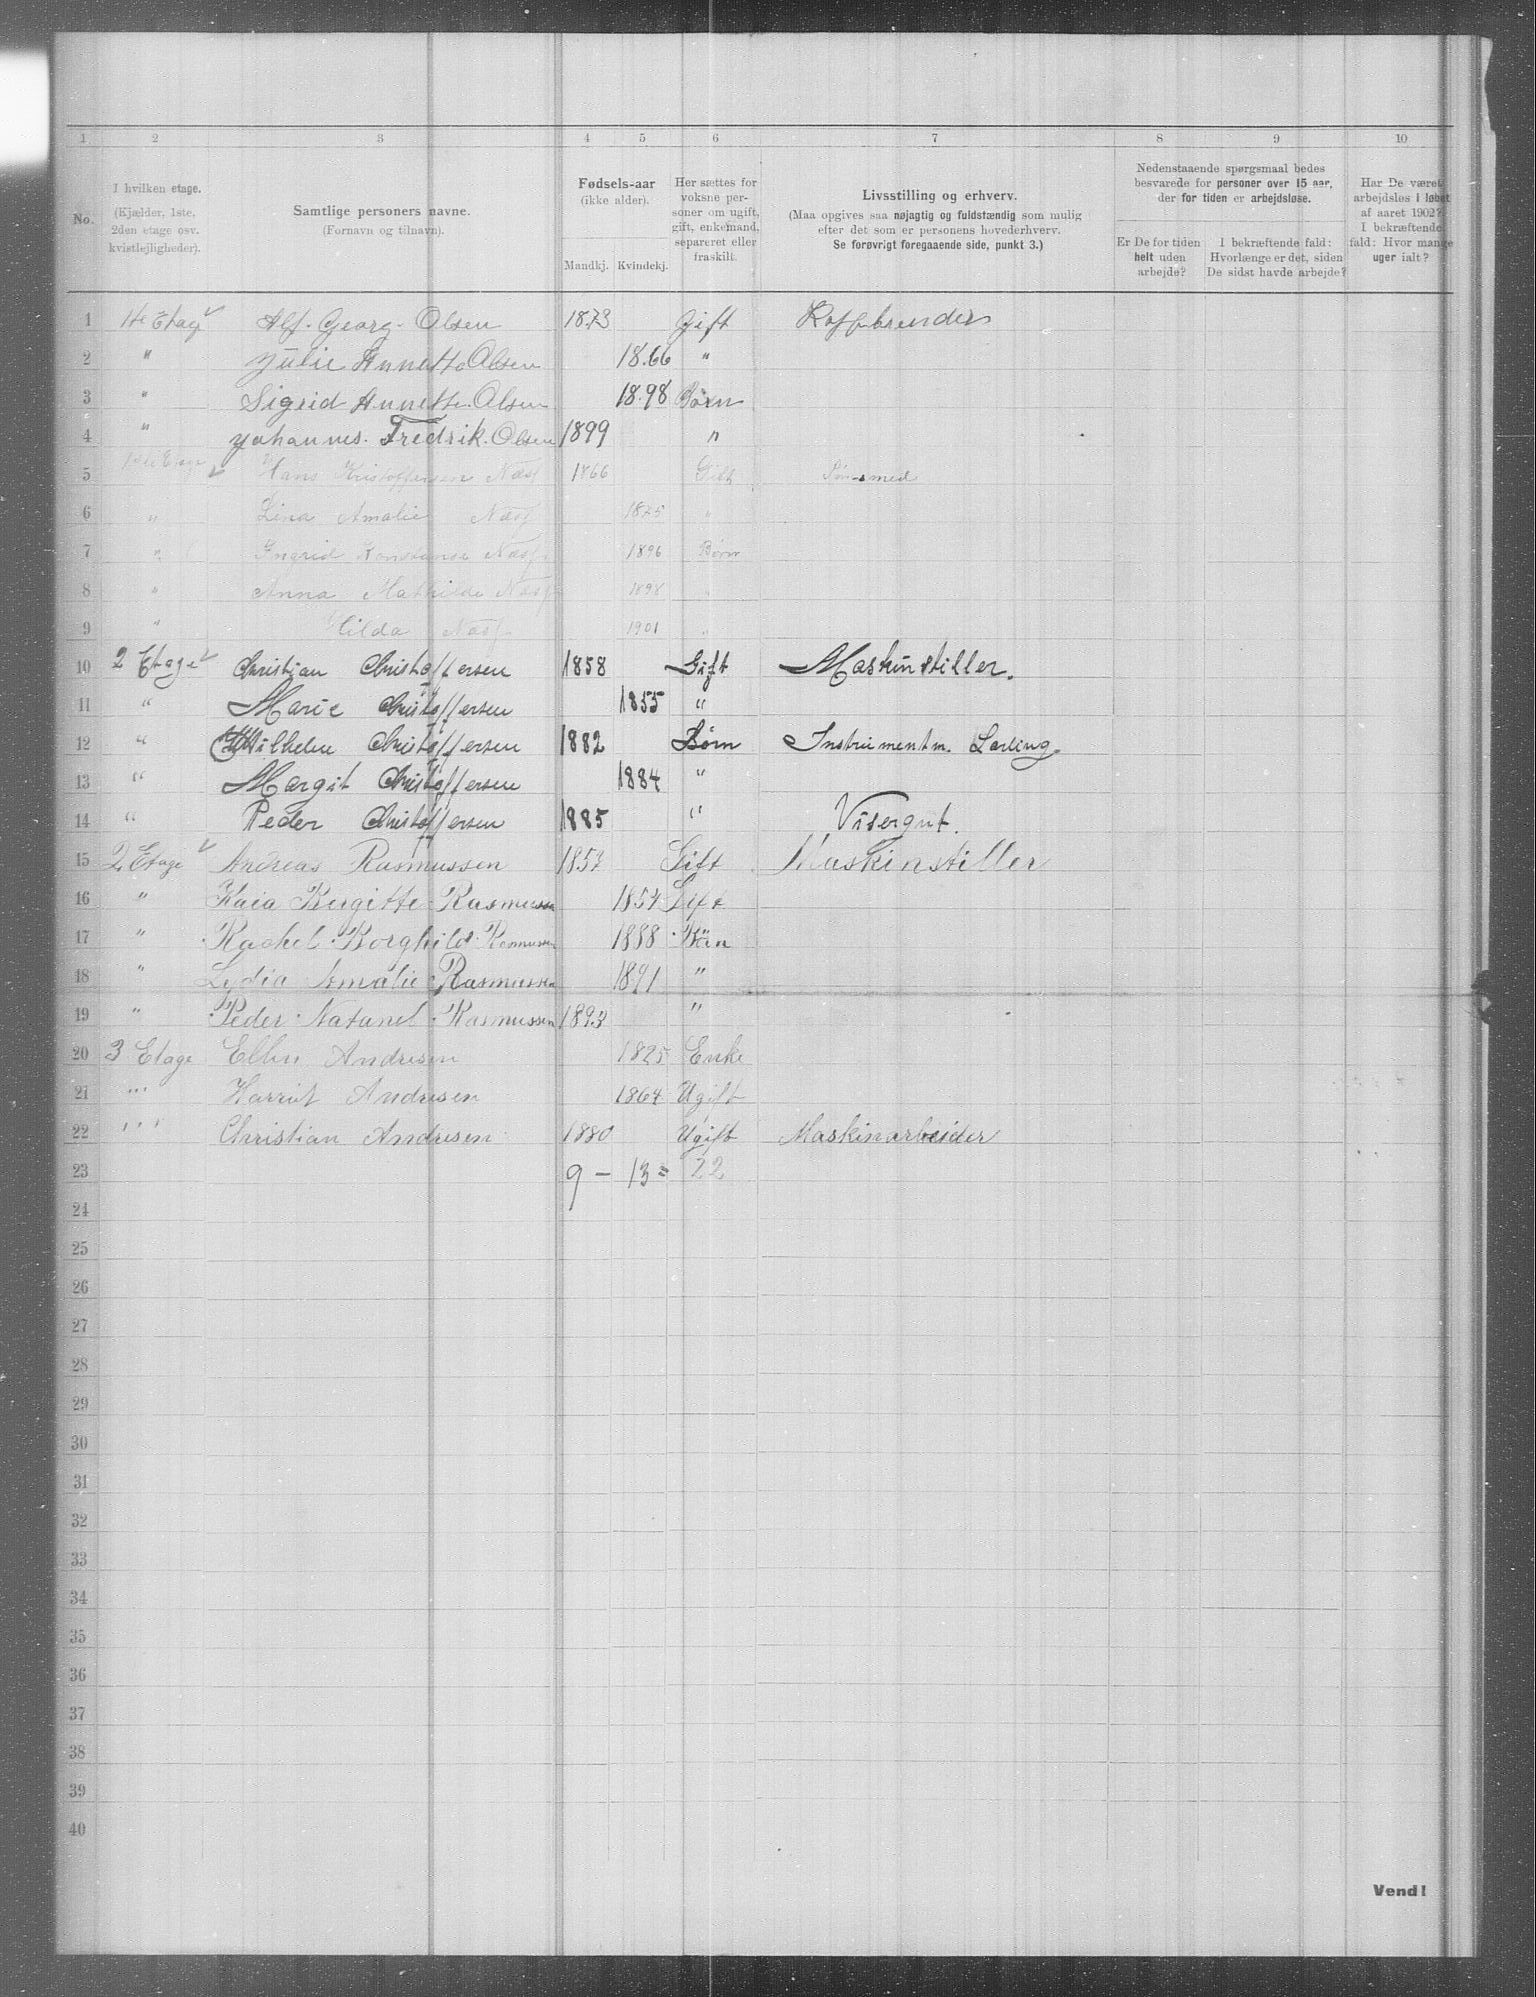 1 2 3 4 5 6 7 8 9 10
No.
I hvilken etage.
(Kjælder, 1ste,
2den etage osv.
kvistlejligheder).
Samtlige personers navne.
(Fornavn og tilnavn).
Fødsels-aar
(ikke alder).
Mandkj. Kvindekj.
Her sættes for
voksne per-
soner om ugift,
gift, enkemand,
separeret eller
fraskilt.
Livsstilling og erhverv.
(Maa opgives saa nøjagtig og fuldstændig som mulig
efter det som er personens hovederhverv.
Se forøvrigt foregaaende side, punkt 3.)
Nedenstaaende spørgsmaal bedes
besvarede for personer over 15 aar,
der for tiden er arbejdsløse.
Er De for tiden
helt uden
arbejde?
I bekræftende fald:
Hvorlænge er det, siden
De sidst havde arbejde?
Har De været
arbejdsløs i løbet
af aaret 1902?
I bekræftende
fald: Hvor mange
uger ialt?
1 1te Etag Alf. Georg. Olsen 1873 Gift Kaffebrender
2 " Julie Annette Olsen 18.66 "
3 " Sigrid Annette. Olsen 18.98 Børn
4 " Johannes. Fredrik. Olsen 1899 "
5 1ste Etage Hans Kristoffersen Næss 1866 Gift
6 " Lina Amalie Næss 1875 "
7 " Ingrid Konstanse Næss 1896 Børn
8 " Anna Mathilde Næss 1898 "
9 " Hilda Næss 1901 "
10 2 Etage Christian Christoffersen 1858 Gift Maskinstiller.
11 " Marie Christoffersen 1855 "
12 " Wilhelm Christoffersen 1882 Børn Instrumentm. Lærling.
13 " Margit Christoffersen 1884 "
14 " Peder Christoffersen 1885 " Visergut.
15 2 Etage Andreas Rasmussen 1857 Gift Maskinstiller
16 " Kaia Birgitte Rasmussen 1854 Gift
17 " Rachel Borghild Rasmussen 1888 Børn
18 " Lydia Amalie Rasmussen 1891 "
19 " Peder Natanel Rasmussen 1893 "
20 3 Etage Ellen Andresen 1825 Enke
21 " Harriet Andresen 1864 Ugift
22 " Christian Andresen 1880 Ugift Maskinarbeider
23 9 – 13 = 22
24
25
26
27
28
29
30
31
32
33
34
35
36
37
38
39
40
Vend!